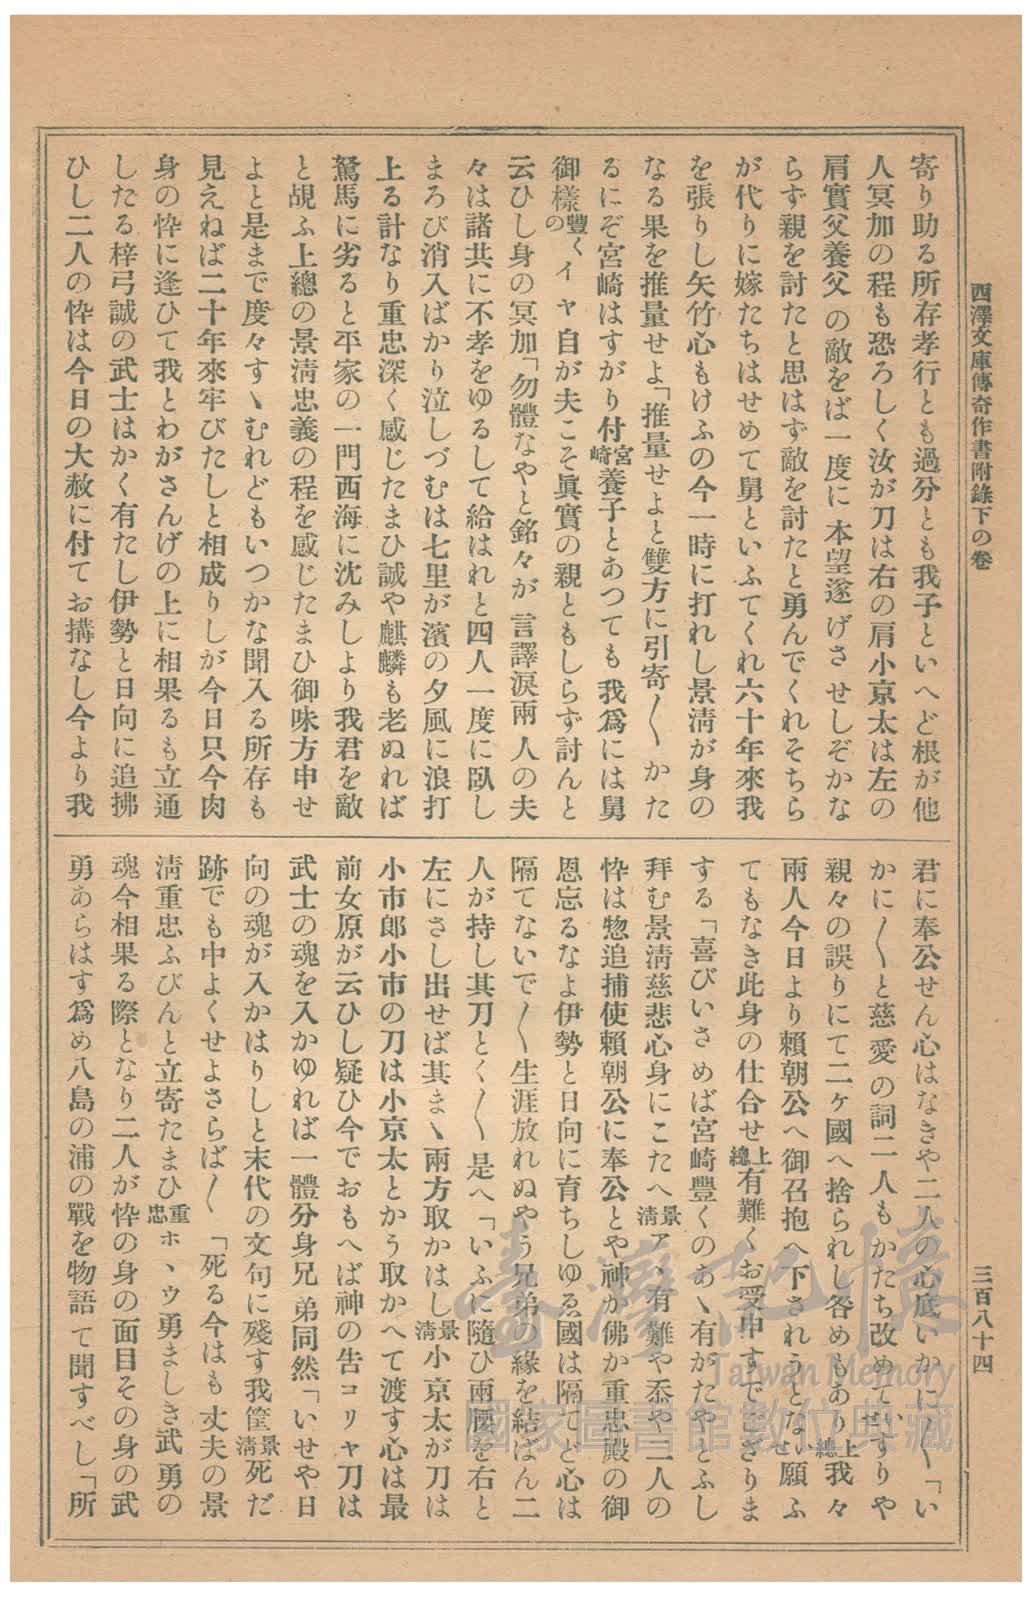 西澤文庫傳奇作書附錄下の卷
三百八十四
寄り助る所存孝行とも過分とも我子といへど根が他
人冥加の程も恐ろしく汝が刀は右の肩小京太は左の
肩實父養父の敵をば一度に本望遂げさせしぞかな
らず親を討たと思はず敵を討たと勇んでくれそちら
が代りに嫁たちはせめて舅といふてくれ六十年來我
を張りし矢竹心もけふの今一時に打れし景淸が身の
なる果を推量せよ「推量せよと雙方に引寄〳〵かた
るにぞ宮崎はすがり付宮崎養子とあつても我爲には舅
御樣の豐くイヤ自が夫こそ眞實の親ともしらず討んと
云ひし身の冥加「勿體なやと銘々が言譯淚兩人の夫
々は諸共に不孝をゆるして給はれと四人一度に臥し
まろび消入ばかり泣しづむは七里が濱の夕風に浪打
上る計なり重忠深く感じたまひ誠や麒麟も老ぬれば
駑馬に劣ると平家の一門西海に沈みしより我君を敵
と覘ふ上總の景淸忠義の程を感じたまひ御味方申せ
よと是まで度々すゝむれどもいつかな聞入る所存も
見えねば二十年來牢びたしと相成りしが今日只今肉
身の忰に逢ひて我とわがさんげの上に相果るも立通
したる梓弓誠の武士はかく有たし伊勢と日向に追拂
ひし二人の忰は今日の大赦に付てお搆なし今より我
君に奉公せん心はなきや二人の心底いかに〳〵「い
かに〳〵と慈愛の詞二人もかたち改めてせいすりや
親々の誤りにて二ケ國へ捨られし咎めもあり上總我々
兩人今日より賴朝公へ御召抱へ下されうとなせい願ふ
てもなき此身の仕合せ上總有難くお受申すでござりま
する「喜びいさめば宮崎豐くのあゝ有がたやとふし
拜む景淸慈悲心身にこたへ景淸アヽ有難や忝や二人の
忰は惣追捕使賴朝公に奉公とや神か佛か重忠殿の御
恩忘るなよ伊勢と日向に育ちしゆゑ國は隔てど心は
隔てないで〳〵生涯放れぬやう兄弟の緣を結ばん二
人が持し其刀とく〳〵是へ「いふに隨ひ兩國を右と
左にさし出せば其まゝ兩方取かはし景淸小京太が刀は
小市郎小市の刀は小京太とかう取かへて渡す心は最
前女原が云ひし疑ひ今でおもへば神の告コリヤ刀は
武士の魂を入かゆれば一體分身兄弟同然「いせや日
向の魂が入かはりしと末代の文句に殘す我筐景淸死だ
跡でも中よくせよさらば〳〵「死る今はも丈夫の景
淸重忠ふびんと立寄たまひ重忠ホヽウ勇ましき武勇の
魂今相果る際となり二人が忰の身の面目その身の武
勇あらはす爲め八島の浦の戰を物語て聞すべし「所
臺灣記憶
Taiwan Memory
國家圖書館數位典藏